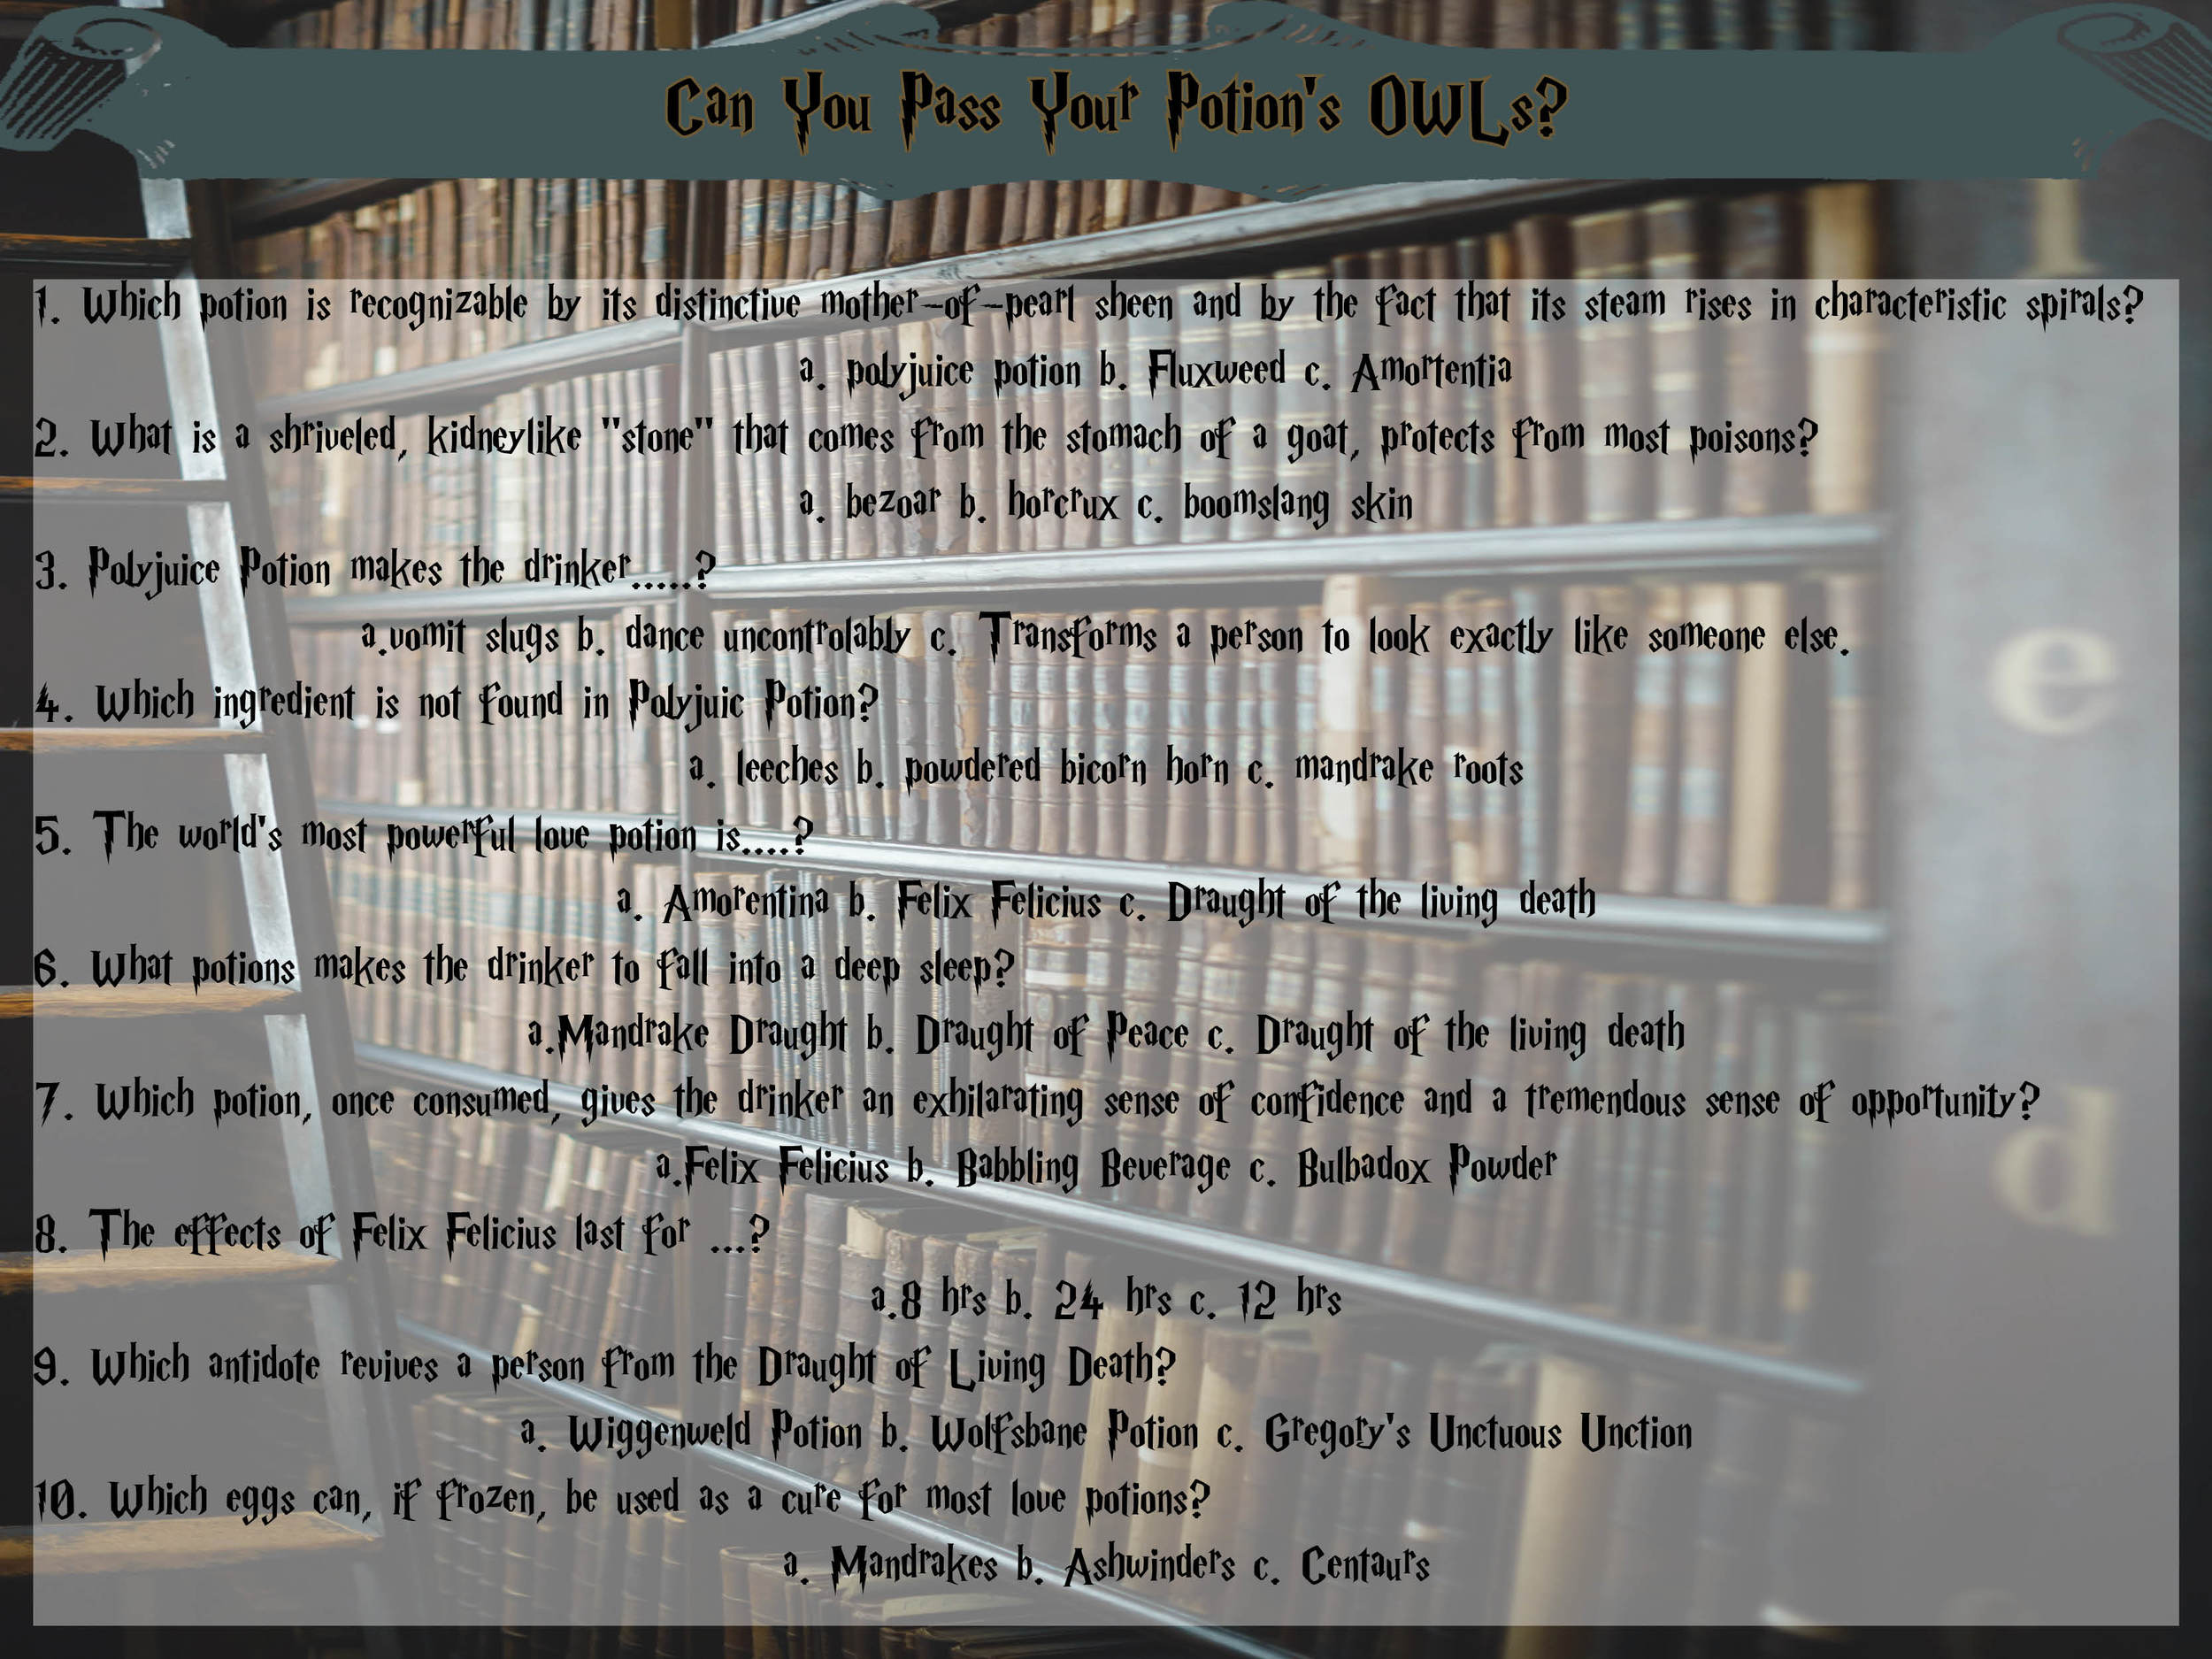 Can You Pass Your Potion's OWLs?
1. Which potion is recognizable by its distinctive mother-of-pearl sheen and by the fact that its steam rises in characteristic spirals?
a. polyjuice potion b. Fluxweed c. Amortentia
2. What is a shriveled, kidneylike "stone" that comes from the stomach of a goat, protects from most poisons?
a. bezoar b. horcrux c. boomslang skin
3. Polyjuice Potion makes the drinker.....?
a.vomit slugs b. dance uncontrolably c. Transforms a person to look exactly like someone else.
4. Which ingredient is not found in Polyjuic Potion?
a. leeches b. powdered bicorn horn c. mandrake roots
5. The world's most powerful love potion is....?
a. Amorentina b. Felix Felicius c. Draught of the living death
6. What potions makes the drinker to fall into a deep sleep?
a.Mandrake Draught b. Draught of Peace c. Draught of the living death
7. Which potion, once consumed, gives the drinker an exhilarating sense of confidence and a tremendous sense of opportunity?
a.Felix Felicius b. Babbling Beverage c. Bulbadox Powder
8. The effects of Felix Felicius last for ...?
a.8 hrs b. 24 hrs c. 12 hrs
9. Which antidote revives a person from the Draught of Living Death?
a. Wiggenweld Potion b. Wolfsbane Potion c. Gregory's Unctuous Unction
10. Which eggs can, if frozen, be used as a cure for most love potions?
a. Mandrakes b. Ashwinders c. Centaurs
l
e
d